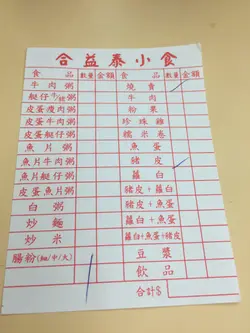 合益泰小食
食品 數量 金額 食品 數量 金額
牛肉粥 燒賣
艇仔 粥 牛肉
皮蛋瘦肉粥 粉菓
皮蛋牛肉粥 珍珠雞
皮蛋艇仔粥 糯米卷
魚片粥 魚蛋
魚片牛肉粥 豬皮
魚片艇仔粥 蘿白
皮蛋魚片粥 豬皮+蘿白
白粥 豬皮+魚蛋
炒麵 蘿白+魚蛋
炒米 蘿白+魚蛋+豬皮
腸粉(細/中/大) 豆漿
飲品
合計$